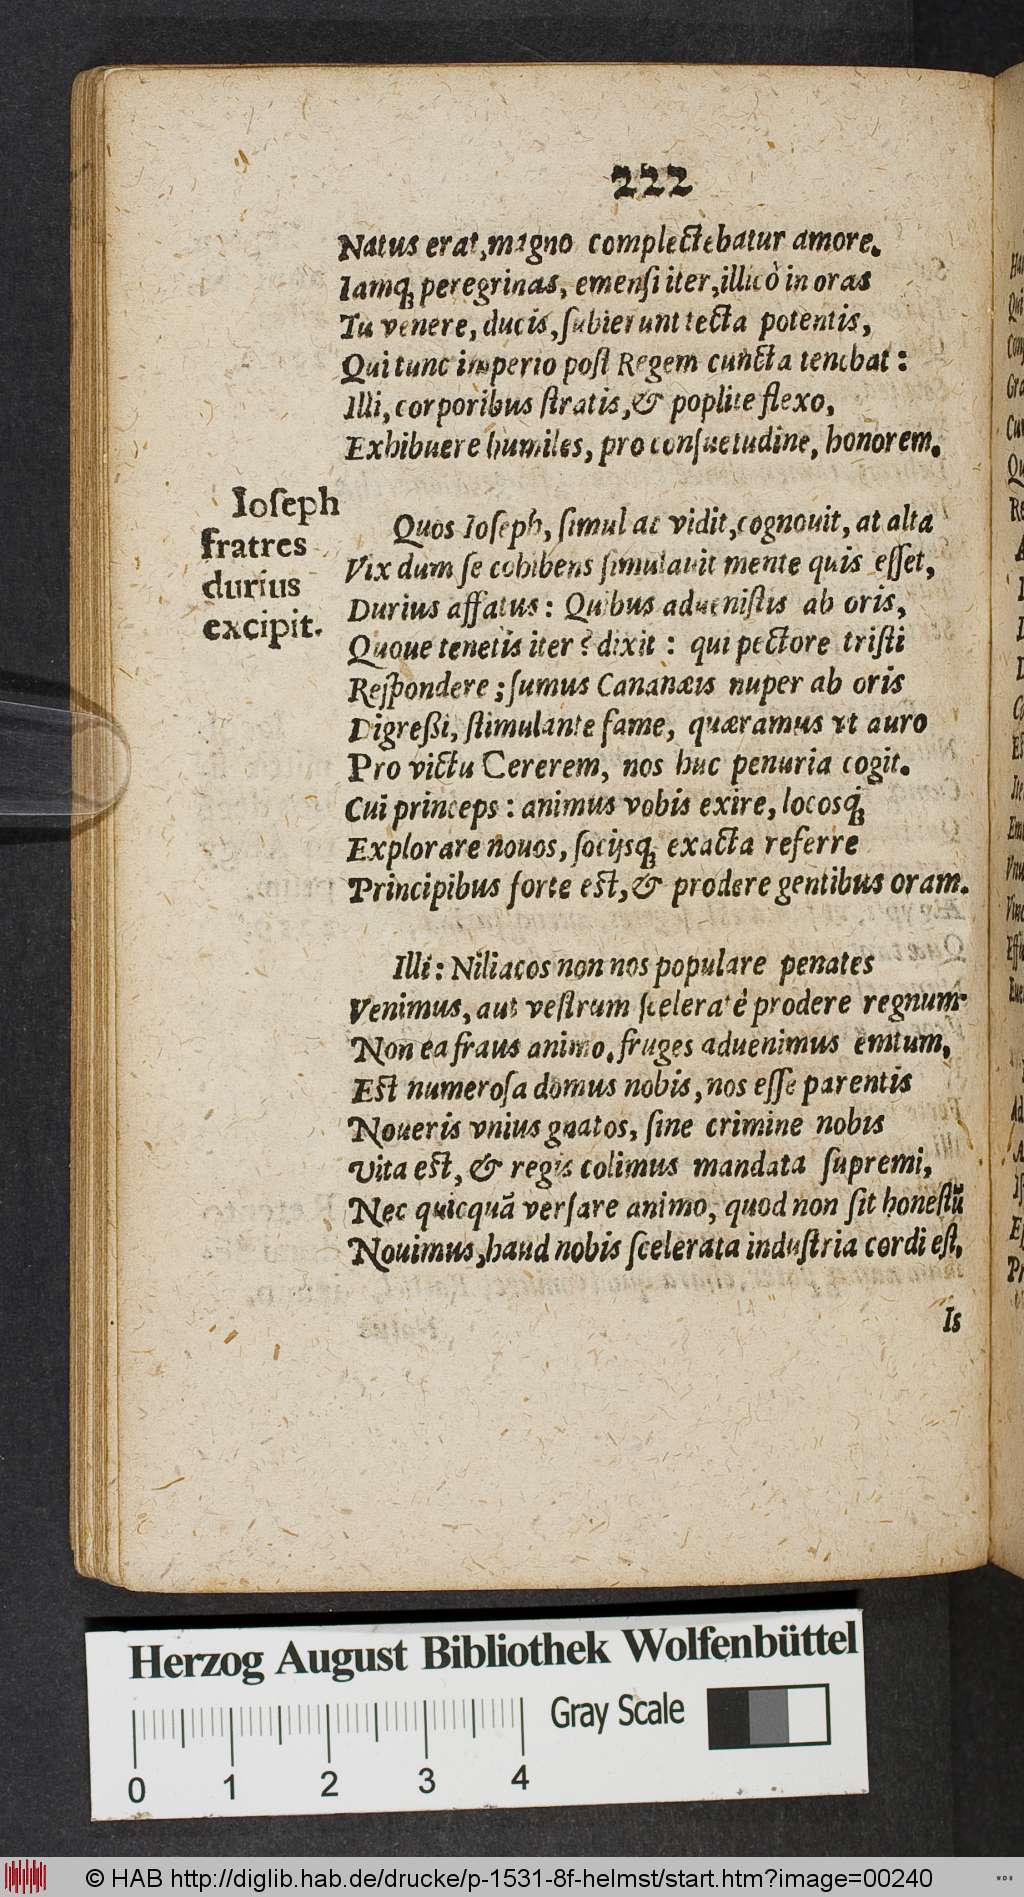 222
Natus erat, magno complectebatur amore.
Iamq́ꝫ peregrinas, emensi iter, illicò in oras
Tu venere, ducis, ſubierunt tecta potentis,
Qui tunc imperio poſt Regem cuncta tenebat:
Illi, corporibus ſtratis, & poplite flexo,
Exhibuere humiles, pro conſuetudine, honorem.
Ioſeph
fratres
durius
excipit.
Quos Ioſeph, ſimul ac vidit, cognouit, at alta
Vix dum ſe cohibens ſimulauit mente quis eſſet,
Durius affatus: Quibus adueniſtis ab oris,
Quoue tenetis iter? dixit: qui pectore triſti
Reſpondere; ſumus Cananæis nuper ab oris
Digreßi, ſtimulante fame, quæramus vt auro
Pro victu Cererem, nos huc penuria cogit.
Cui princeps: animus vobis exire, locosq́ꝫ
Explorare nouos, ſocijsqꝫ exacta referre
Principibus forte eſt, & prodere gentibus oram.
Illi: Niliacos non nos populare penates
Venimus, aut veſtrum ſceleratè prodere regnum.
Non ea fraus animo. fruges aduenimus emtum,
Eſt numeroſa domus nobis, nos eſſe parentis
Noueris vnius gnatos, ſine crimine nobis
Vita eſt, & regis colimus mandata ſupremi,
Nec quicquã verſare animo, quod non ſit honeſtũ
Nouimus, haud nobis ſcelerata induſtria cordi eſt.
Is
Herzog August Bibliothek Wolfenbüttel
Gray Scale
0 1 2 3 4
© HAB http://diglib.hab.de/drucke/p-1531-8f-helmst/start.htm?image=00240